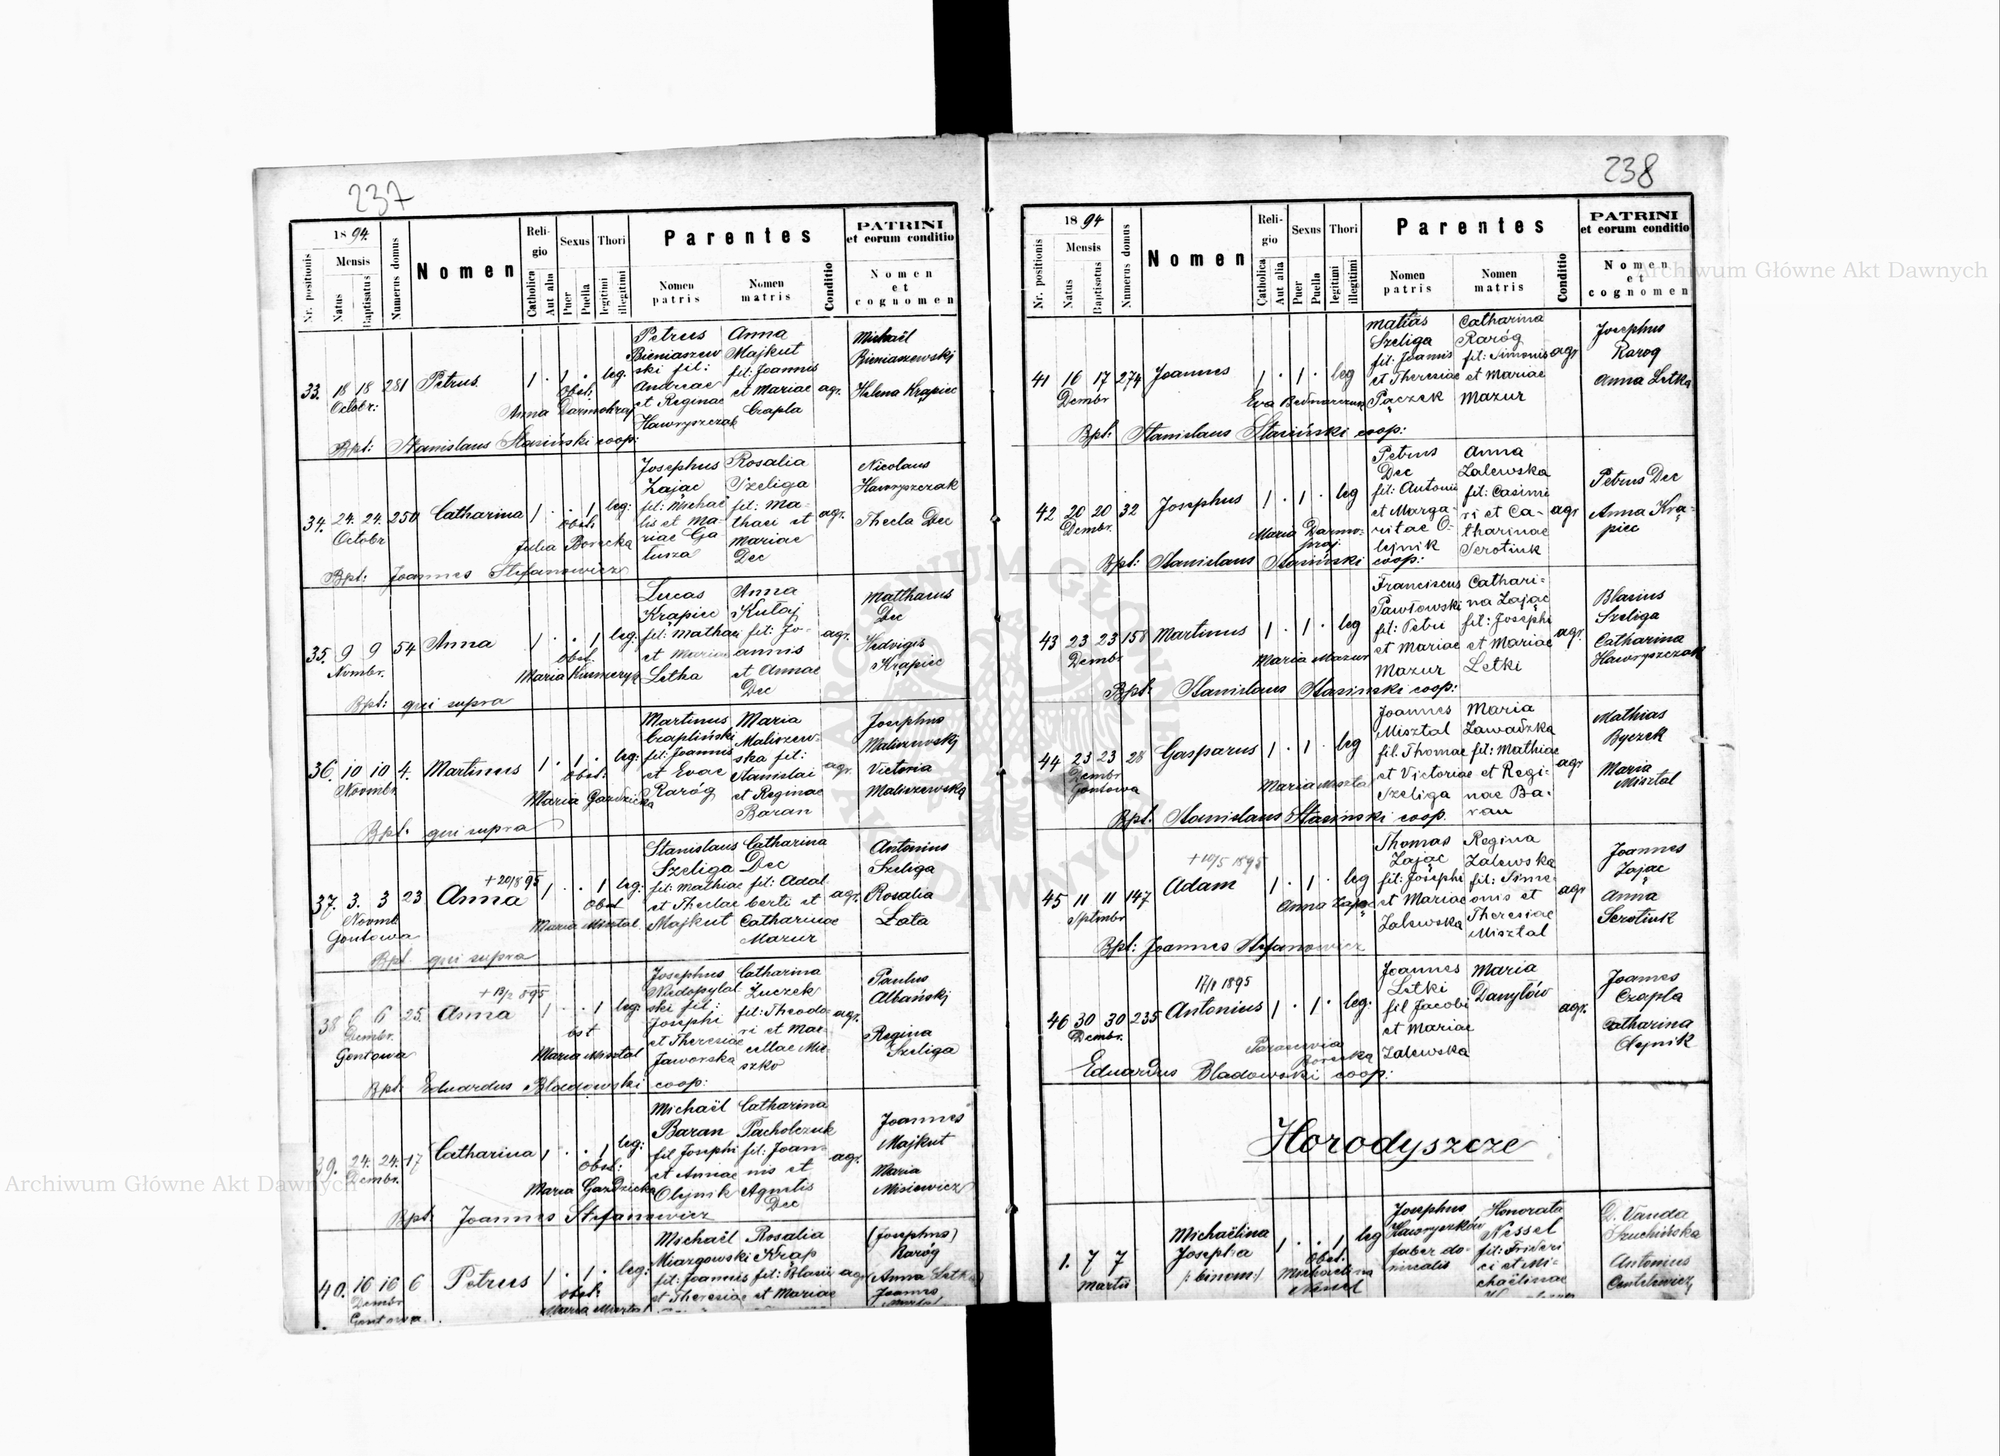 237
1894.
Nr. positionis
Mensis
Natus
Baptisatus
Numerus domus
Nomen
Religio
Catholica
Aut alia
Sexus
Puer
Puella
Thori
legitimi
illegitimi
Parentes
Nomen patris
Nomen matris
Conditio
PATRINI
et eorum conditio
Nomen
et
cognomen
33. 18 18 281 Petrus. 1 . 1 . leg:
Octobr:
Obst:
Anna Darmohraj
Petrus
Bieniaszew
ski fil:
Andreae
et Reginae
Hawryszczak
Anna
Majkut
fil: Joannis
et Mariae
Czapla
agr.
Michaël
Bieniaszewskj
Helena Krąpiec
Bpt: Stanislaus Stasiński coop:
34. 24. 24. 250 Catharina 1 . . 1 leg:
Octobr
Obst:
Julia Borecka
Josephus
Zając
fil: Michaë
lis et Ma-
riae Ga
łusza
Rosalia
Szeliga
fil: Ma-
thaei et
Mariae
Dec
agr.
Nicolaus
Hawryszczak
Thecla Dec
Bpt: Joannes Stefanowicz
35. 9 9 54 Anna 1 . . 1 leg:
Novmbr.
Obst.
Lucas
Krąpiec
fil: Mathaei
et Mariae
Letka
Anna
Kułaj
fil: Jo-
annis
et Annae
Dec
agr.
Matthaeus
Dec
Hedvigis
Krąpiec
Bpt: qui supra
36. 10 10 4. Martinus 1 . 1 . leg:
Novmbr.
Obst:
Maria Gazdzicka
Martinus
Czapliński
fil: Joannis
et Evae
Raróg
Maria
Maliszew-
ska fil:
Stanislai
et Reginae
Baran
agr.
Josephus
Maliszewskj
Victoria
Maliszewska
Bpt. qui supra
37. 3. 3 23 Anna 1 . . 1 leg:
Novmb
Gontowa
Obst
Maria Misztal
Stanislaus
Szeliga
fil: Mathiae
et Theclae
Majkut
Catharina
Dec
fil: Adal
berti et
Catharinae
Mazur
agr.
Antonius
Szeliga
Rosalia
Łata
Bpt qui supra
38 6 6 25. Anna 1 . . 1 leg:
Dembr.
Gontowa
obst
Maria Misztal
Josephus
Niedopytal
ski fil:
Josephi
et Theresiae
Jaworska
Catharina
Żuczek
fil: Theodo-
ri et Mar-
cellae Mie-
szko
agr.
Paulus
Albańskj
Regina
Szeliga
Bpt: Eduardus Bladowski coop:
39. 24. 24. 17 Catharina 1 . . 1 leg:
Dembr.
Obst:
Maria Gazdzicka
Michaël
Baran
fil Josephi
et Annae
Olejnik
Catharina
Pacholczuk
fil: Joan-
nis et
Agnetis
Dec
agr.
Joannes
Majkut
Maria
Misiewicz
Bpt: Joannes Stefanowicz
40. 16 16 6 Petrus 1 . 1 . leg:
Dembr
Gontowa
obst:
Maria Misztal
Michaël
Miazgowski
fil: Joannis
et Theresiae
Rosalia
Krąp
fil: Blasii
et Mariae
agr
(Josephus)
Raróg
(Anna Letka)
Joannes
238
1894
Nr. positionis
Mensis
Natus
Baptisatus
Numerus domus
Nomen
Religio
Catholica
Aut alia
Sexus
Puer
Puella
Thori
legitimi
illegitimi
Parentes
Nomen patris
Nomen matris
Conditio
PATRINI
et eorum conditio
Nomen
et
cognomen
41 16 17 274 Joannes 1 . 1 . leg
Dembr
Eva Bednarczuk
Matias
Szeliga
fil: Joannis
et Theresiae
Pączek
Catharina
Raróg
fil: Simonis
et Mariae
Mazur
agr
Josephus
Rarog
Anna Letka
Bpt: Stanislaus Stasiński coop:
42 20 20 32 Josephus 1 . 1 . leg
Dembr.
Maria Darmo-
hraj
Petrus
Dec
fil: Antonii
et Marga-
ritae O-
lejnik
Anna
Zalewska
fil: Casimi
ri et Ca-
tharinae
Serotiuk
agr
Petrus Dec
Anna Krą-
piec
Bpt: Stanislaus Stasiński coop:
43 23 23 158 Martinus 1 . 1 . leg
Dembr
Maria Mazur
Franciscus
Pawłowski
fil: Petri
et Mariae
Mazur
Cathari-
na Zając
fil: Josephi
et Mariae
Letki
agr.
Blasius
Szeliga
Catharina
Hawryszczak
Bpt: Stanislaus Stasinski coop:
44 23 23 28 Gasparus 1 . 1 . leg
Dembr
Gontowa
Maria Misztal
Joannes
Misztal
fil. Thomae
et Victoriae
Szeliga
Maria
Zawadzka
fil: Mathiae
et Regi-
nae Ba-
ran
agr
Mathias
Byczek
Maria
Misztal
Bpt: Stanislaus Stasiński coop.
+10/5 1895
45 11 11 147 Adam 1 . 1 . leg
Sptmbr
Anna Zając
Thomas
Zając
fil: Josephi
et Mariae
Zalewska
Regina
Zalewska
fil: Sime-
onis et
Theresiae
Misztal
agr
Joannes
Zając
Anna
Serotiuk
Bpt: Joannes Stefanowicz
46 30 30 235 Antonius 1 . 1 . leg.
Dembr.
Parascevia
Borecka
Joannes
Letki
fil Jacobi
et Mariae
Zalewska
Maria
Danyłów
agr.
Joannes
Czapla
Catharina
Olejnik
Eduardus Bladowski coop:
Horodyszcze
1. 7 7 Michaëlina 1 . . 1 leg
Martii
Josepha
/: binom:/
Obst:
Michaelina
Nessel
Josephus
Hawryszków
faber do-
minicalis
Honorata
Nessel
fil: Frideri
ci et Mi-
chaëlinae
D. Vanda
Antonius
Archiwum Główne Akt Dawnych
Archiwum Główne Akt Dawnych
ARCHIWUM GŁÓWNE AKT DAWNYCH